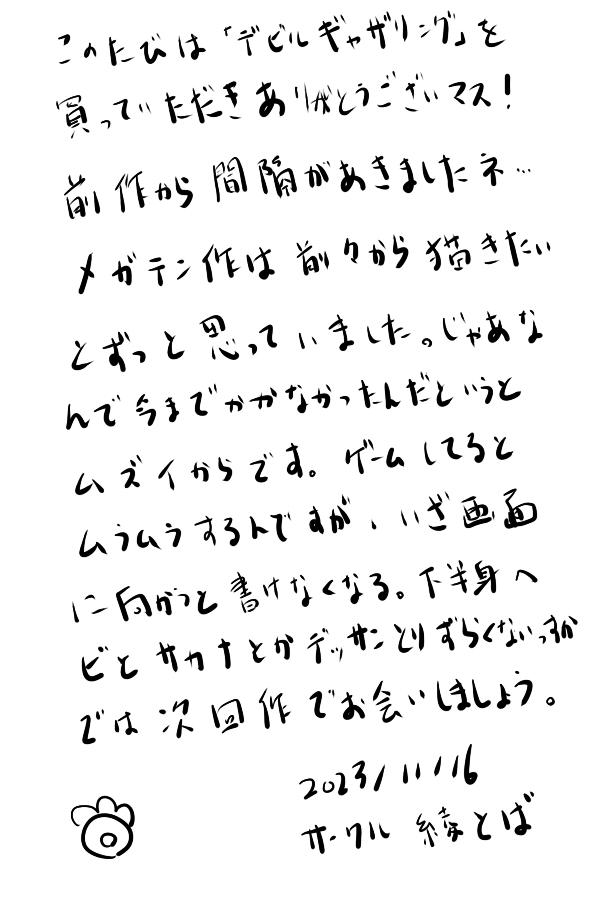 このたびは「デビルギャザリング」を
買っていただきありがとうございマス!
前作から間隔があきましたネ…
メガテン作は前々から描きたい
とずっと思っていました。じゃあな
んで今までかかなかったんだというと
ムズイからです。ゲームしてると
ムラムラするんですが、いざ画面
に向かうと書けなくなる。下半身ヘ
ビとサカナとかデッサンとりずらくないっすか
では次回作でお会いしましょう。
2023/11/16
サークル 綾とば